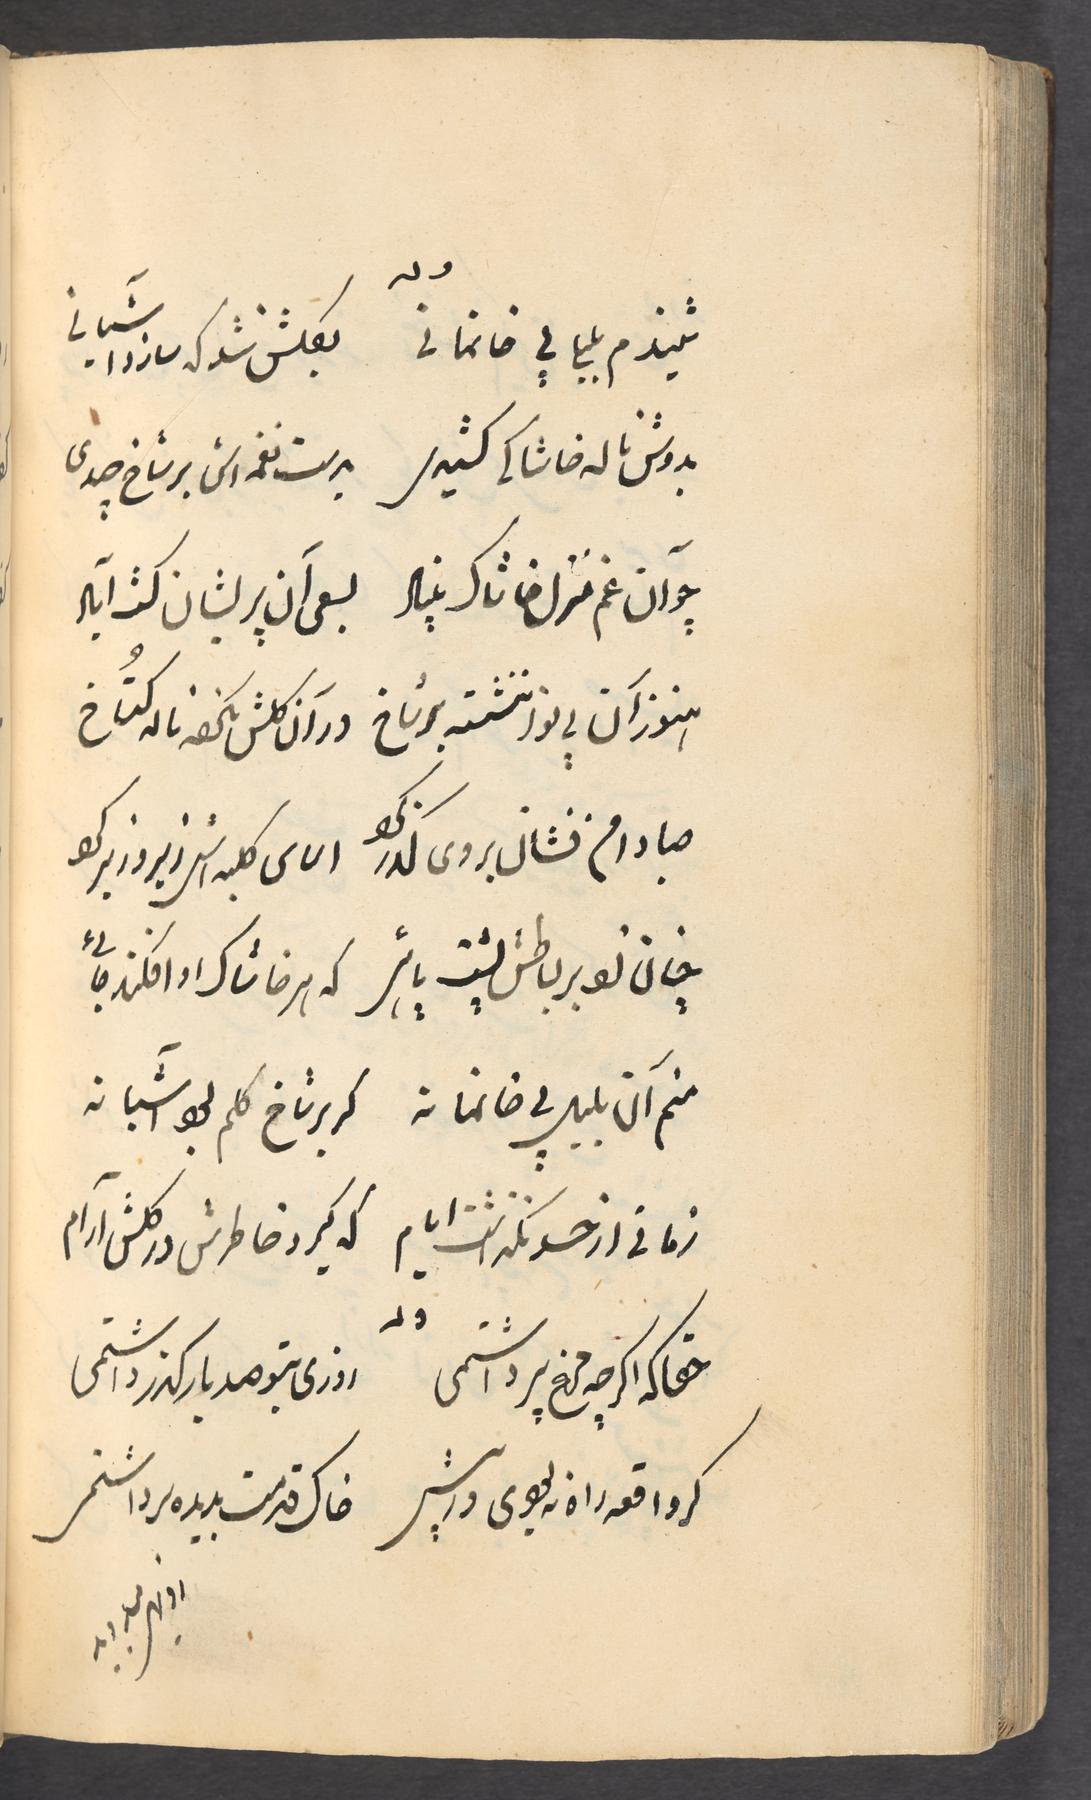 وله
شنیدم بلبلی بی خانمانی بگلشن شد که سازد آشیانی
بدوش ناله خاشاکی کشیدی بدست نغمه اش بر شاخ چیدی
چو آن غم منزل خاشاک بنیاد بسعی آن پریشان گشت آباد
هنوز آن بی نوا ننشسته بر شاخ در آن گلشن نکرده ناله گستاخ
صبا دامن فشان بروی گذر کرد اساس کلبه اش زیر و زبر کرد
چنان زد بر بساطش پشت پائی که هر خاشاک او افکند جائی
منم آن بلبل بی خانمانه که بر شاخ گلم بود آشیانه
زمانی از حسد نگذاشت ایام که گیرد خاطرش در گلشن آرام
وله
حقا که اگر چو مرغ پر داشتمی روزی بتو صد بار گذر داشتمی
گر واقعه راه نه بودی در پیش خاک قدمت بدیده برداشتمی